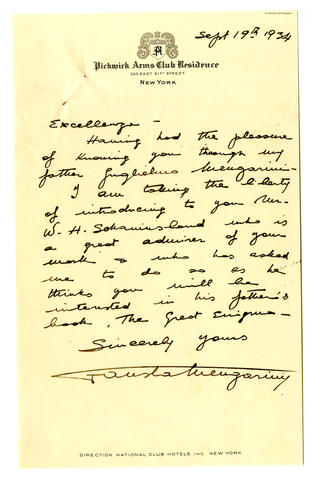 Sept 19th 1934
Pickwick Arms Club Residence
230 EAST 51ST STREET
NEW YORK
Excellenza –
Having had the pleasure
of knowing you through my
father Guglielmo Mengarini –
I am taking the liberty
of introducing to you Mr.
W. H. who is
a great admirer of your
work & who has asked
me to do so as he
thinks you will be
interested in his father's
book, The Great Enigma –
Sincerely yours
Fausta Mengarini
DIRECTION NATIONAL CLUB HOTELS, INC. NEW YORK